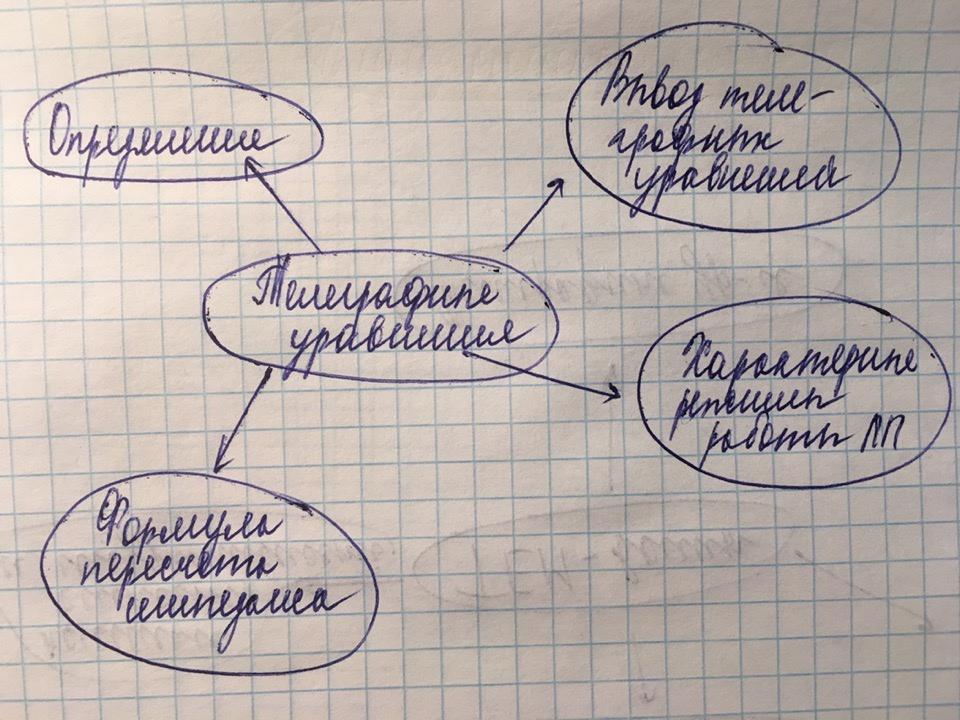 Определение
Вывод теле-
графных
уравнений
Телеграфные
уравнения
Характерные
режимы
работы ЛП
Формула
пересчета
импеданса